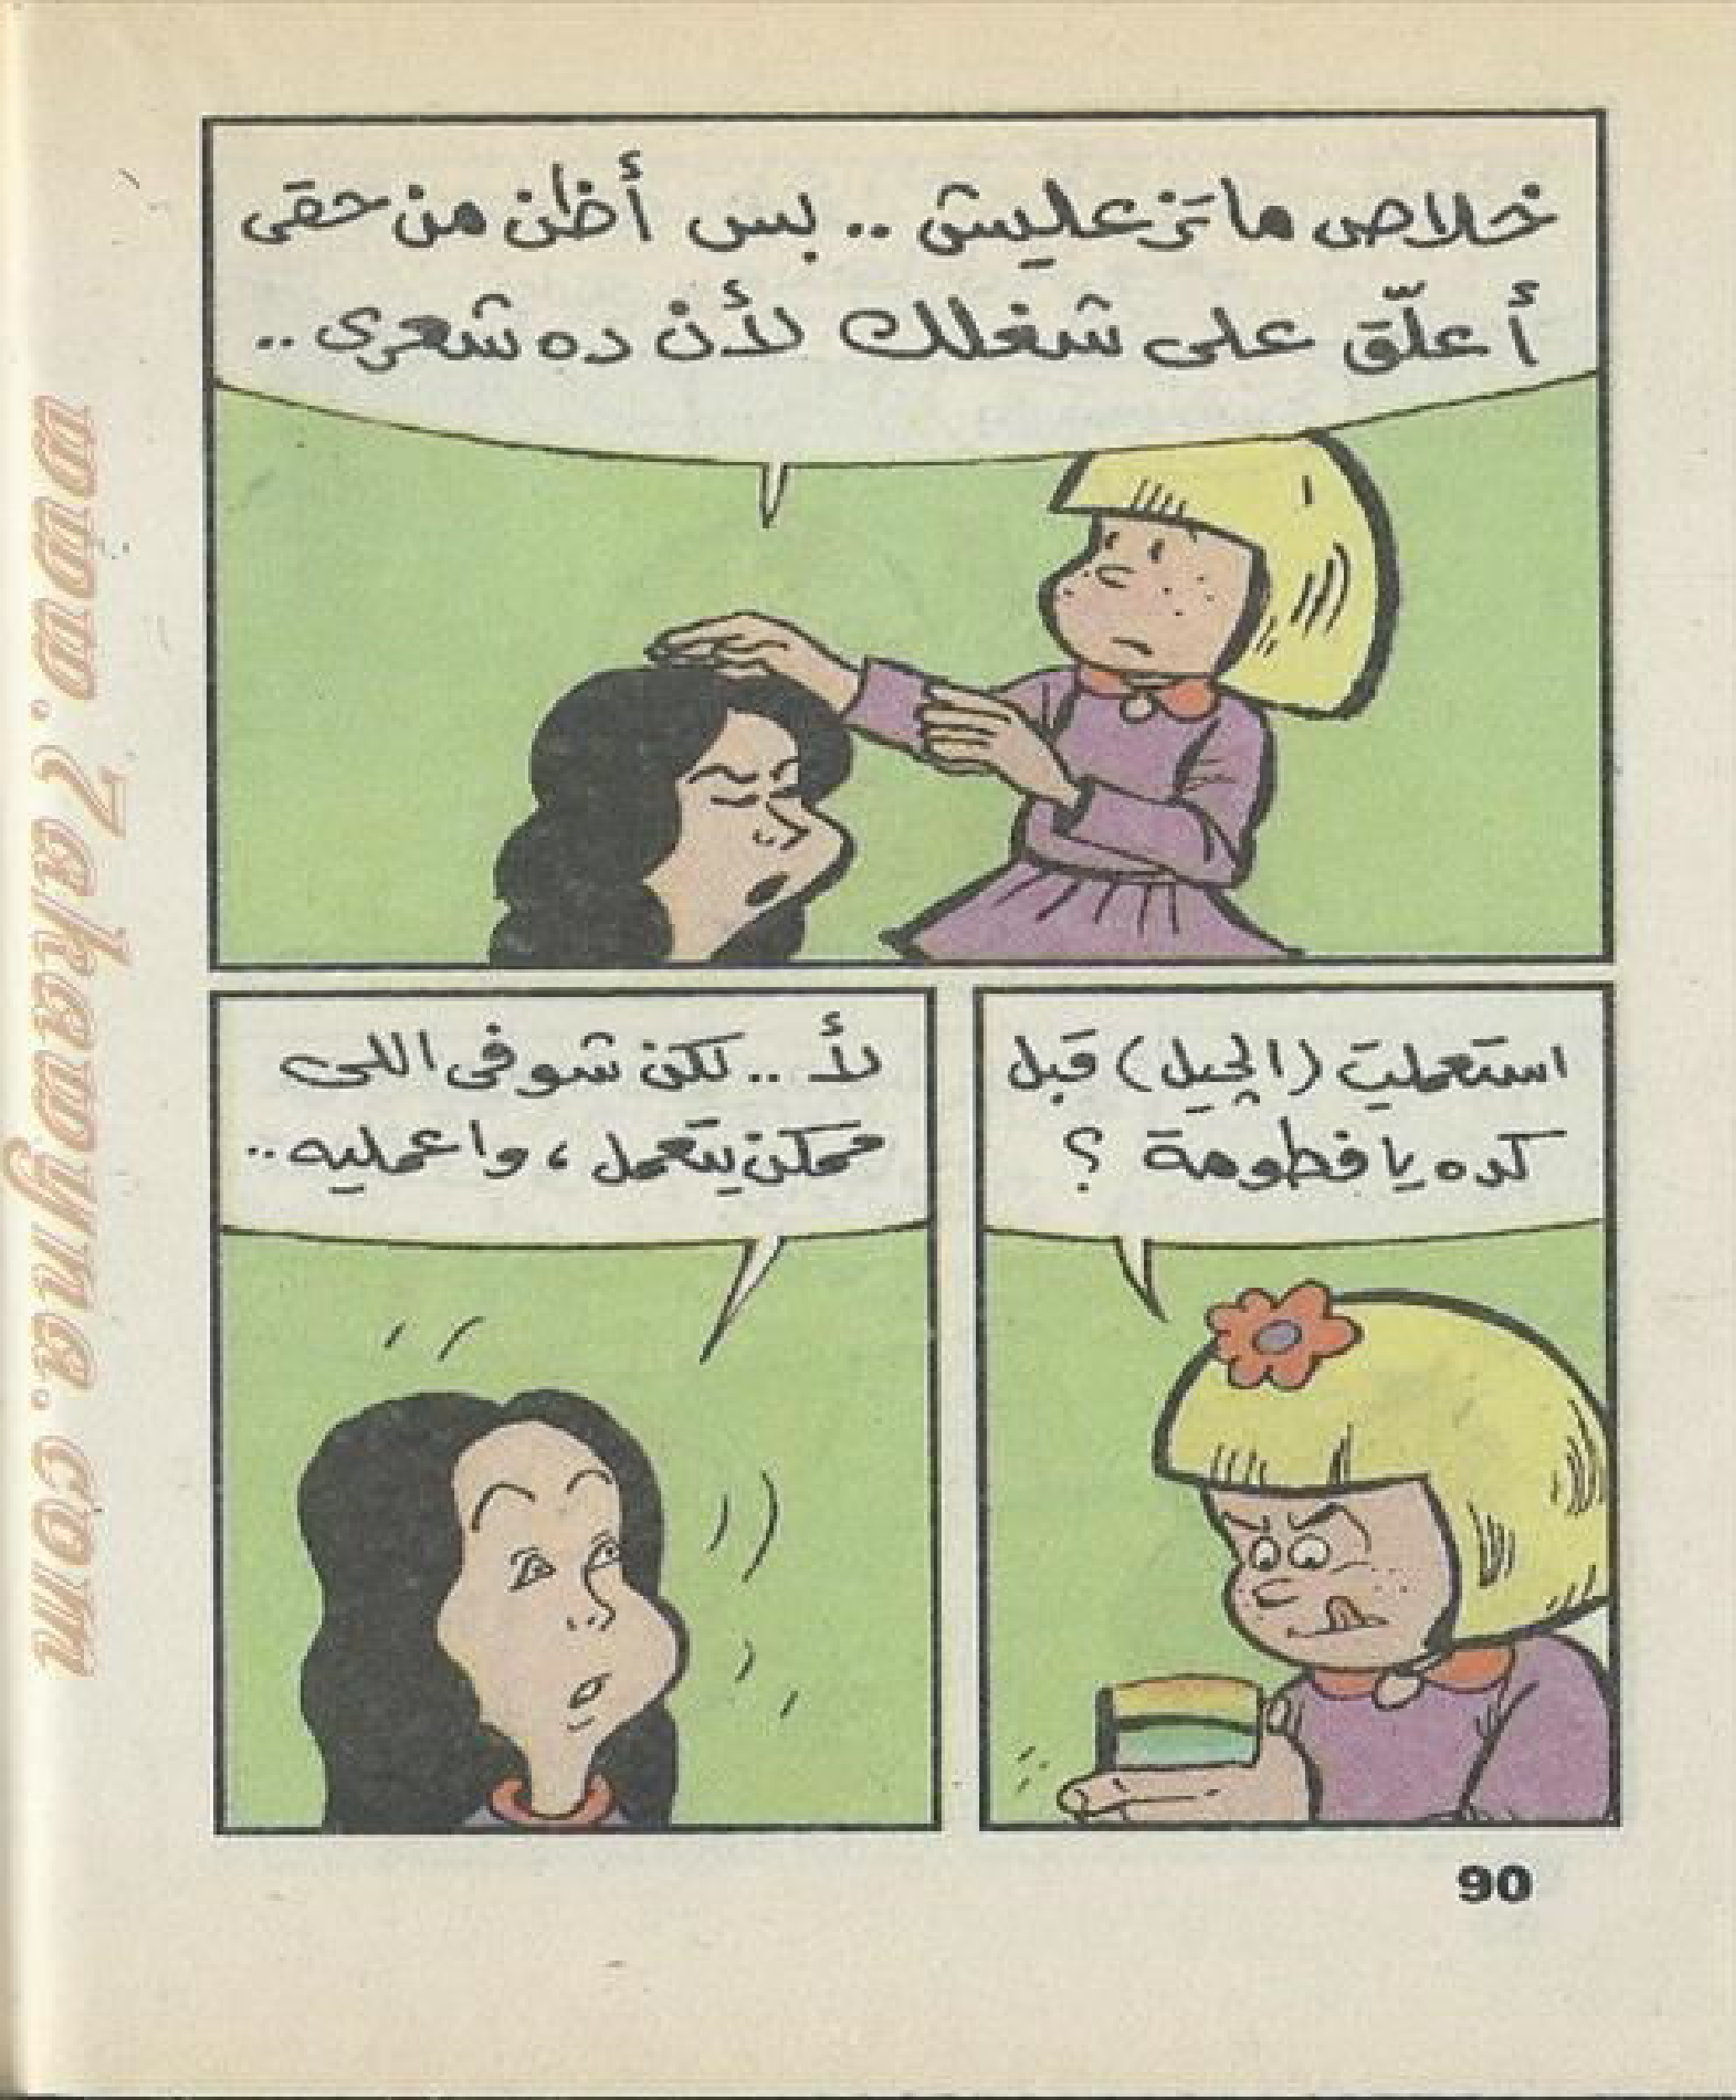 خلاص ماتزعليش .. بس أظن من حقى
أعلّق على شغلك لأن ده شعرى ..
استعمليت (الچيل) قبل
كده يا فطومة ؟
لأ .. لكن شوفى اللى
ممكن يتعمل ، واعمليه ..
90
www.7akawyna.com